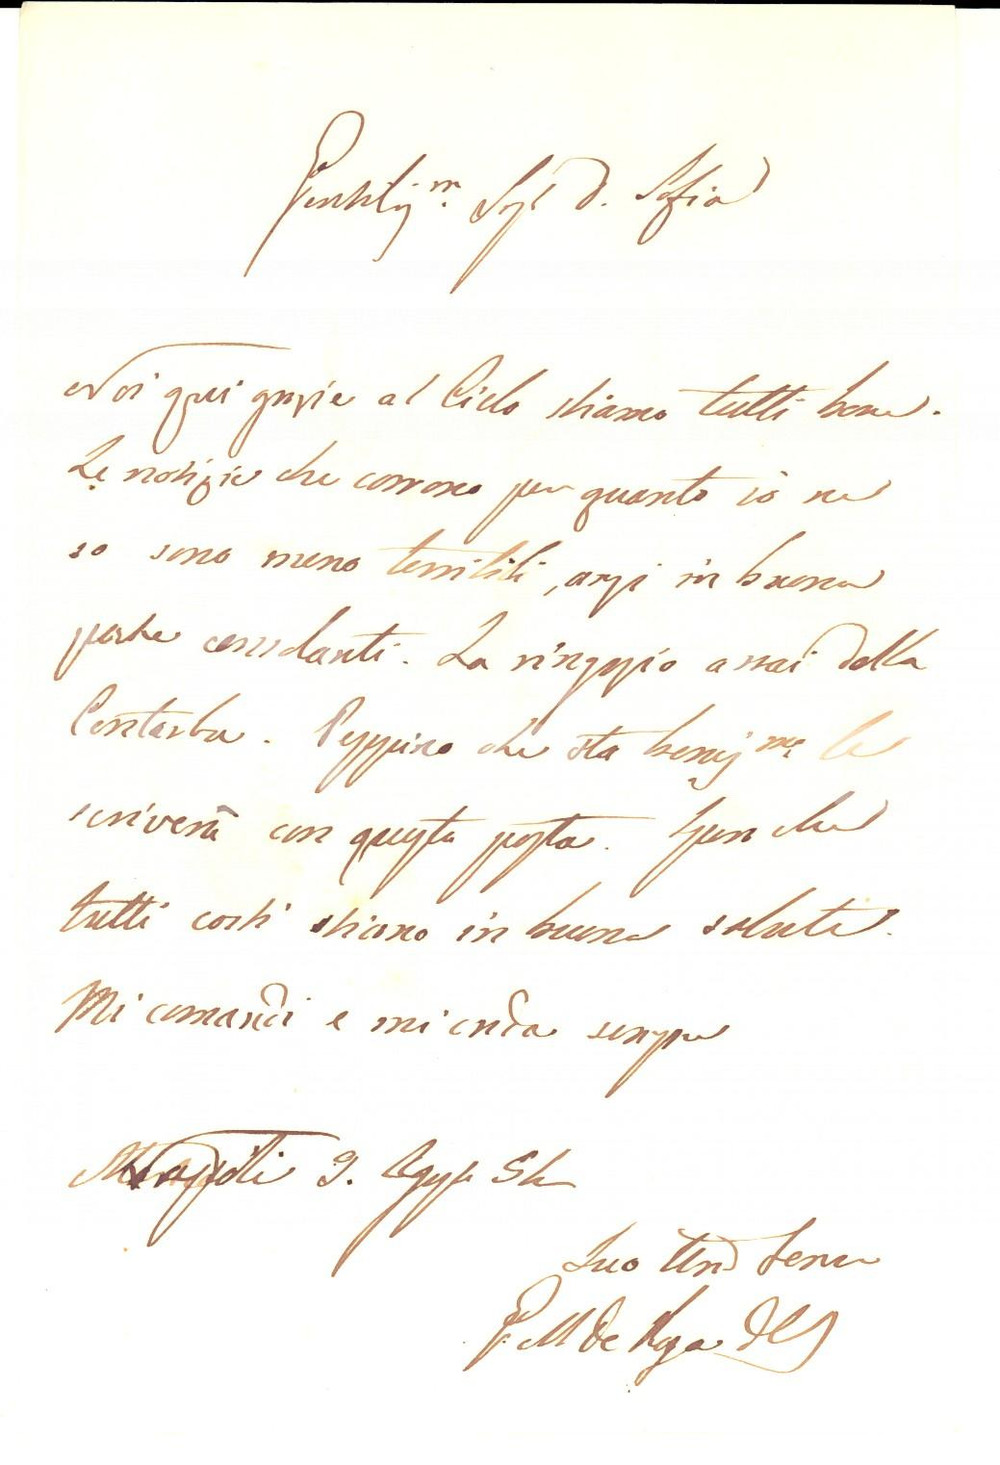 Gentilis.ma Sig.a D. Sofia
Noi qui grazie al Cielo stiamo tutti bene.
Le notizie che corrono per quanto io ne
so sono meno terribili, anzi in buona
parte consolanti. La ringrazio assai della
Peppino che sta beniss.mo le
scriverà con questa posta. Spero che
tutti costì stiano in buona salute.
Mi comandi e mi creda sempre
Napoli 9. Ag
Suo
P. M de